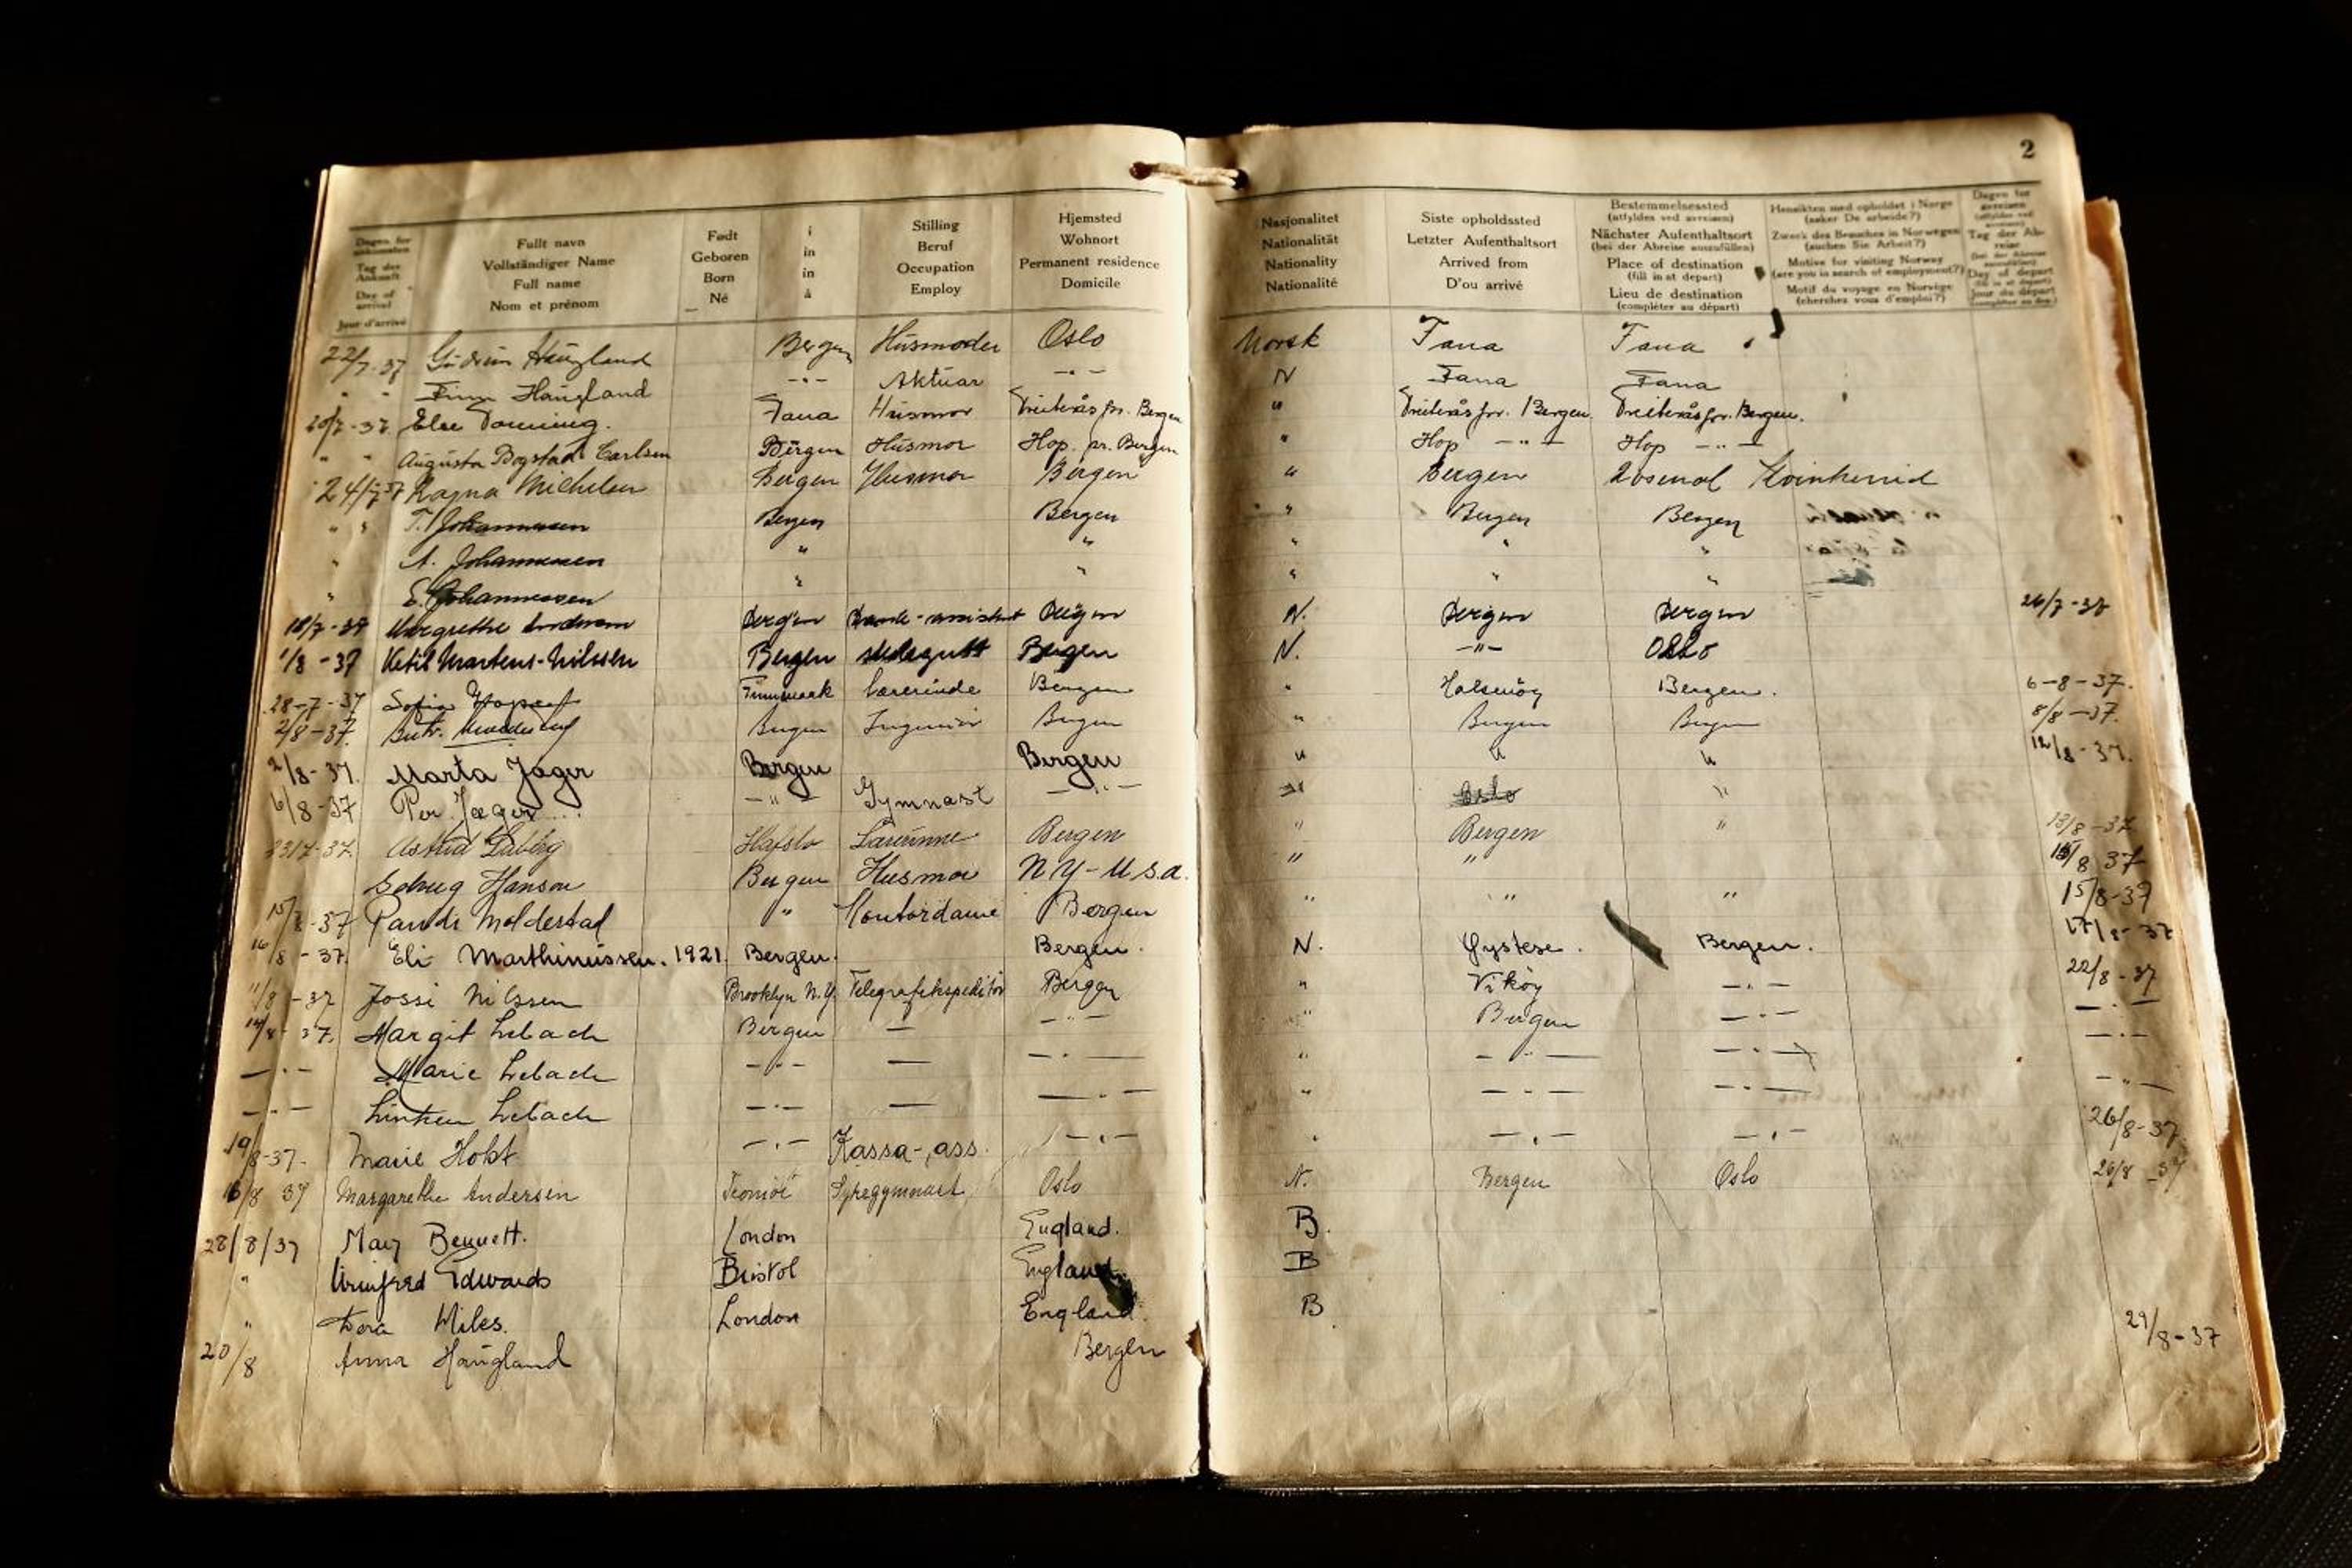 2
Dagen for ankomsten
Tag der Ankunft
Day of arrival
Jour d'arrivé
Fullt navn
Vollständiger Name
Full name
Nom et prénom
Født
Geboren
Born
Né
i
in
in
à
Stilling
Beruf
Occupation
Employ
Hjemsted
Wohnort
Permanent residence
Domicile
Nasjonalitet
Nationalität
Nationality
Nationalité
Siste opholdssted
Letzter Aufenthaltsort
Arrived from
D'ou arrivé
Bestemmelsessted
(utfyldes ved avreisen)
Nächster Aufenthaltsort
(bei der Abreise auszufüllen)
Place of destination
(fill in at depart)
Lieu de destination
(compléter au départ)
Hensikten med opholdet i Norge
(søker De arbeide?)
Zweck des Besuches in Norwegen
(suchen Sie Arbeit?)
Motive for visiting Norway
(are you in search of employment?)
Motif du voyage en Norvège
(cherchez vous d'emploi?)
Dagen for avreisen
Tag der Abreise
Day of depart
Jour du départ
22/7-37 Gudrun Haugland Bergen Husmoder Oslo Norsk Fana Fana
" " Finn Haugland -"- Aktuar -"- N Fana Fana
Else Fana Husmor pr. Bergen " pr. Bergen pr. Bergen.
" " Augusta Bogstad Carlsen Bergen Husmor Hop. pr. Bergen " Hop -"- Hop -"-
24/7 37 Ragna Michelsen Bergen Husmor Bergen " Bergen Rosendal Kvinherrid
" " T. Johannessen Bergen Bergen " Bergen Bergen
" A. Johannessen " " " " "
" E. Johannessen " " " " "
18/7-37 Margrethe Bergen Bergen N. Bergen Bergen 26/7-37
1/8-37 Ketil Martens-Nilssen Bergen Bergen N. -"- Oslo
28-7-37 Sofie Finnmark Lærerinde Bergen " Halsnøy Bergen. 6-8-37.
2/8-37. Bergen Ingeniør Bergen " Bergen Bergen 8/8-37.
2/8-37. Marta Jæger Bergen Bergen " " " 12/8-37.
6/8-37 Per Jæger -"- Gymnast -"- " Oslo "
Astrid Hafslo Lærerinne Bergen " Bergen " 13/8-37
Solveig Hanson Bergen Husmor N Y-U.S.A. " " 15/8 37
15/8-37 Randi Molderstad " Kontordame Bergen " " " 15/8-37
16/8-37. Eli Marthinussen. 1921. Bergen. Bergen. N. Øystese. Bergen. 17/8-37
11/8-37 Jossi Nilssen Brooklyn N.Y. Telegrafekspeditør Bergen " Vikøy -"- 22/8-37
14/8-37. Margit Lebach Bergen — -"- " Bergen -"- -"-
-"- Marie Lebach -"- — -"- " -"- -"- -"-
-"- Lebach -"- — -"- " -"- -"- -"-
19/8-37. Marie Holst -"- Kassa-ass. -"- " -"- -"- 26/8-37
16/8 37 Margarethe Andersen Sykegymnast Oslo N. Bergen Oslo 26/8-37
28/8/37 May Bennett. London England. B.
" Winifred Edwards Bristol England. B
" Dora Miles. London England. B
20/8 Anna Haugland Bergen 29/8-37